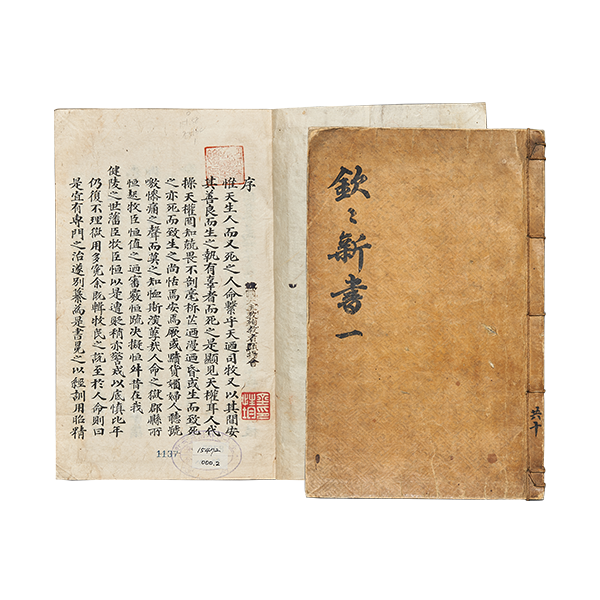 欽〻新書 一
共十
序
惟天生人而又死之人命繫乎天迺司牧又以其間安
其善良而生之執有辜者而死之是顯見天權耳人代
操天權罔知兢畏不剖毫析芒迺漫迺昏或生而致死
之亦死而致生之尚恬焉安焉厥或黷貨媚婦人聽號
噭慘痛之聲而莫之知恤斯深孼哉人命之獄郡縣所
恒起牧臣恒值之迺審覈恒疏決擬恒舛昔在我
健陵之世藩臣牧臣恒以是遭貶稍亦警戒以底慎比年
仍復不理獄用多冤余旣輯牧民之說至於人命則曰
是宜有專門之治遂別纂為是書冕之以經訓用昭精
1137
15472
000.2